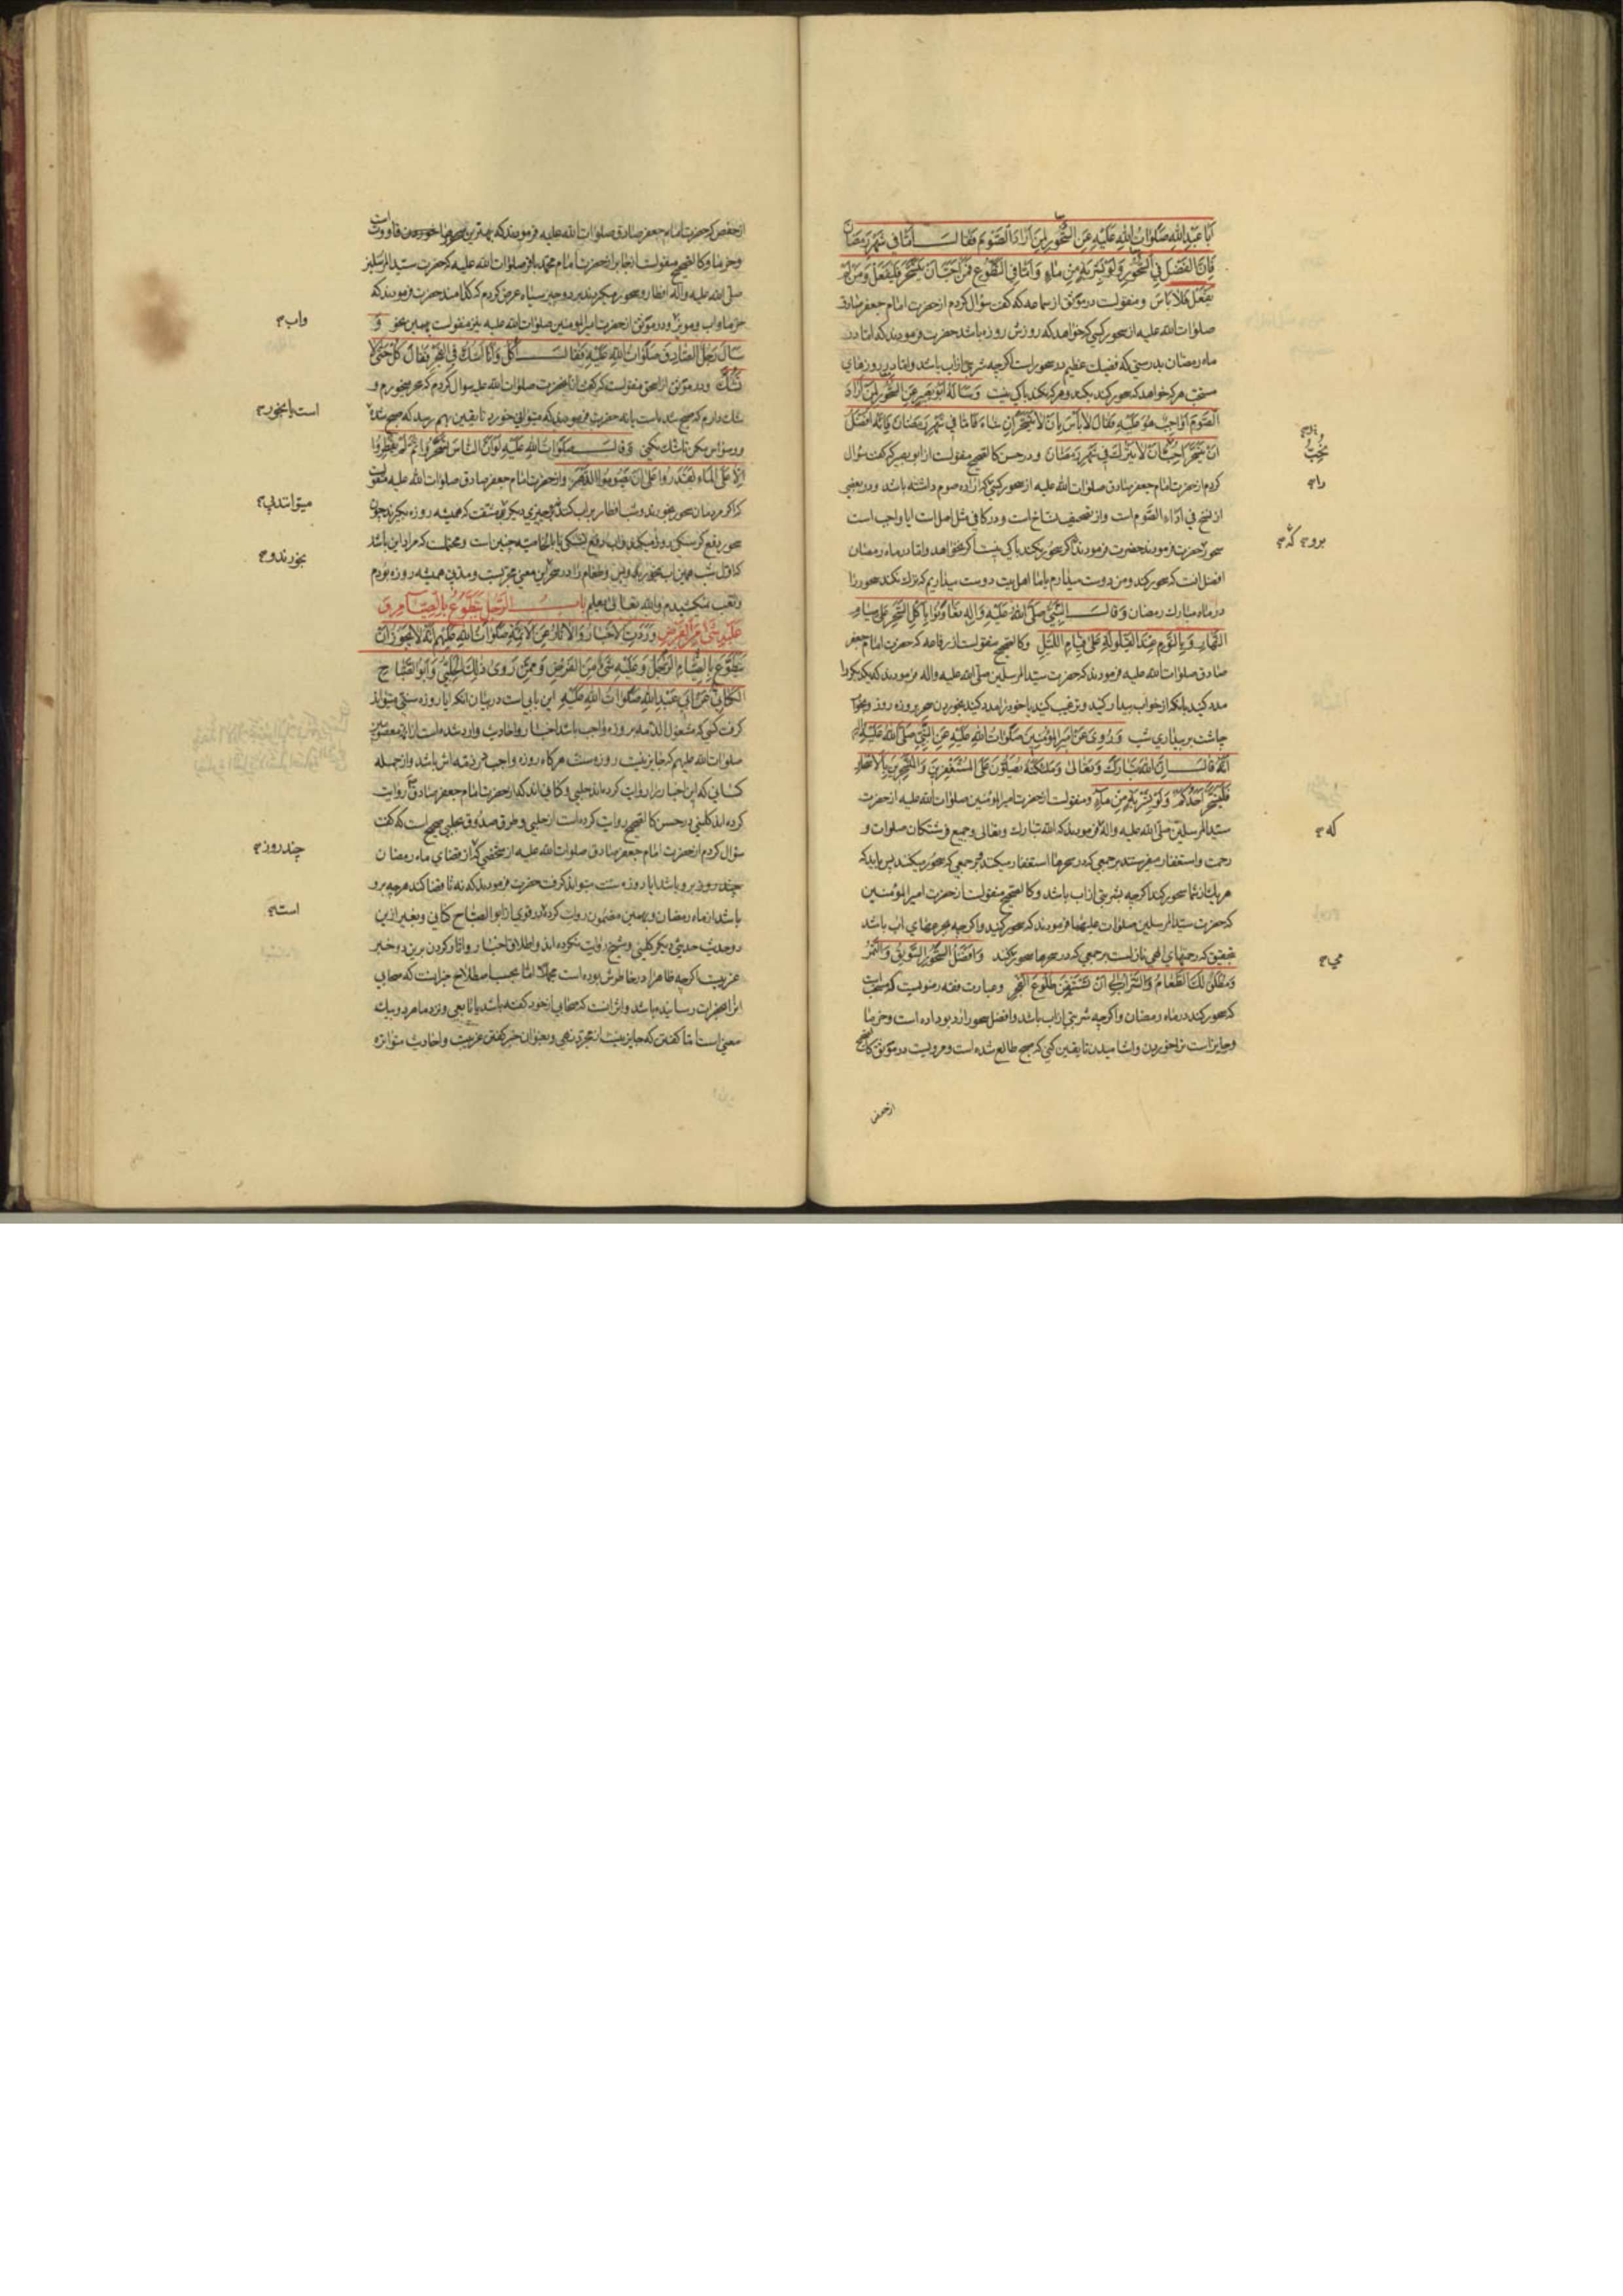 اَبا عَبدِاللهِ صَلَواتُ اللهِ عَلَيْهِ عَنِ السَّحُورِ لِمَنْ اَرادَ الصَّوْمَ فَقالَ اَمّا في شَهْرِ رَمَضانَ
فَاِنَّ الفَضْلَ فِي السَّحُورِ وَلَوْ بِشَرْبَةٍ مِنْ ماءٍ وَاَمّا فِي التَّطَوُّعِ فَمَنْ اَحَبَّ اَنْ يَتَسَحَّرَ فَلْيَفْعَلْ وَمَنْ لَمْ
يَفْعَلْ فَلا بَأسَ ومنقولست درموثق از سماعه که گفت سؤال کردم از حضرت امام جعفر صادق
صلوات الله علیه از سحور کسی که خواهد که روزش روزه باشد حضرت فرمودند که اما در
ماه رمضان بدرستی که فضیلت عظیم در سحور است اگرچه شربتی از آب باشد و اما در روزهای
مستحب هر که خواهد که سحور کند بکند و هر که نکند باکی نیست وَسَأَلَهُ اَبُو بَصيرٍ عَنِ السَّحُورِ لِمَنْ اَرادَ
الصَّوْمَ اَواجِبٌ هُوَ عَلَيْهِ فَقالَ لا بَأسَ بِاَنْ لا يَتَسَحَّرَ اِنْ شاءَ فَاَمّا في شَهْرِ رَمَضانَ فَاِنَّهُ اَفْضَلُ
اَنْ يَتَسَحَّرَ اَحَبُّ اَنْ لا يُتْرَكَ في شَهْرِ رَمَضانَ ودرحسن کالصحیح منقولست از ابو بصیر که گفت سؤال
کردم از حضرت امام جعفر صادق صلوات الله علیه از سحور کسی که اراده صوم داشته باشد ودر بعضی
از نسخ في اداء الصوم است واز تصحیف نساخ است ودر کافی مثل اصل است ایا واجب است
سحور حضرت فرمودند که اگر سحور نکند باکی نیست اگر نخواهد واما در ماه رمضان
افضل انست که سحور کند ومن دوست میدارم یا ما اهل بیت دوست میداریم که ترک نکند سحور را
در ماه مبارک رمضان وَقالَ النَّبِيُّ صَلَّى اللهُ عَلَيْهِ وَآلِهِ تَعاوَنُوا بِاَكْلِ السَّحَرِ عَلى صِيامِ
النَّهارِ وَبِالنَّوْمِ عِنْدَ القَيْلُولَةِ عَلى قِيامِ اللَّيْلِ وکالصحیح منقولست از رفاعه که حضرت امام جعفر
صادق صلوات الله علیه فرمودند که حضرت سید المرسلین صلی الله علیه واله فرمودند که یکدیگر را
مدد کنید بانکه از خواب بیدار کنید وترغیب کنید یا خود را مدد کنید بخوردن سحر بر روزه روز وبخواب
چاشت بر بیداری شب وَرُوِيَ عَنْ اَميرِ المُؤمِنينَ صَلَواتُ اللهِ عَلَيْهِ عَنِ النَّبِيِّ صَلَّى اللهُ عَلَيْهِ وَآلِهِ
اَنَّهُ قالَ اِنَّ اللهَ تَبارَكَ وَتَعالى وَمَلائِكَتَهُ يُصَلُّونَ عَلَى المُسْتَغْفِرينَ وَالمُتَسَحِّرينَ بِالاَسْحارِ
فَلْيَتَسَحَّرْ اَحَدُكُمْ وَلَوْ بِشَرْبَةٍ مِنْ ماءٍ ومنقولست از حضرت امیرالمؤمنین صلوات الله علیه از حضرت
سید المرسلین صلی الله علیه واله که فرمودند که الله تبارک وتعالی وجمیع فرشتگان صلوات و
رحمت واستغفار میفرستند بر جمعی که در سحرها استغفار میکنند وبر جمعی که سحور میکنند پس باید که
هر یک از شما سحور کند اگرچه بشربتی از آب باشد وکالصحیح منقولست از حضرت امیرالمؤمنین
که حضرت سید المرسلین صلوات علیهما فرمودند که سحور کنید واگرچه بجرعهای اب باشد
بتحقیق که رحمتهای الهی نازلست بر جمعی که در سحرها سحور میکنند وَاَفْضَلُ السَّحُورِ السَّوِيقُ وَالتَّمْرُ
وَمُطْلَقٌ لَكَ الطَّعامُ وَالشَّرابُ اِلى اَنْ تَسْتَيْقِنَ طُلُوعَ الفَجْرِ وعبارت فقه رضویست که سنت است
که سحور کند در ماه رمضان واگرچه شربتی از اب باشد وافضل سحور ارد بو داده است وخرما
وجایز است ترا خوردن واشامیدن تا یقین کنی که صبح طالع شده است ومرویست در موثق کالصحیح
از حفص
از حفص که حضرت امام جعفر صادق صلوات الله علیه فرمودند که بهترین سحورها قاووت است
وخرما وکالصحیح منقولست از جابر از حضرت امام محمد باقر صلوات الله علیه که حضرت سید المرسلین
صلی الله علیه واله افطار وسحور میکردند بر دو چیز سیاه عرض کردم که کدامند حضرت فرمودند که
خرما واب ومویز ودر موثق از حضرت امیرالمؤمنین صلوات الله علیه نیز منقولست بهمین نحو وَ
سَأَلَ رَجُلٌ الصّادِقَ صَلَواتُ اللهِ عَلَيْهِ فَقالَ آكُلُ وَاَنَا اَشُكُّ فِي الفَجْرِ فَقالَ كُلْ حَتّى لا
تَشُكَّ ودر موثق از اسحق منقولست که گفت بانحضرت صلوات الله علیه سؤال کردم که سحر میخورم و
شک دارم که صبح شده است یا نه حضرت فرمودند که میتوانی خورد تا یقین بهم رسد که صبح شد
ووسواس مکن تا شک نکنی وَقالَ صَلَواتُ اللهِ عَلَيْهِ لَوْ اَنَّ النّاسَ تَسَحَّرُوا ثُمَّ لَمْ يُفْطِرُوا
اِلّا عَلَى الماءِ لَقَدَرُوا عَلى اَنْ يَصُومُوا الدَّهْرَ واز حضرت امام جعفر صادق صلوات الله علیه منقولست
که اگر مردمان سحور بخورند وشب افطار بر اب کنند وچیزی دیگر نخورند مشقت که همیشه روزه بگیرند چون
سحور رفع گرسنگی روز میکند واب رفع تشنگی یا بالخاصیه چنین است ومحتملست که مراد این باشد
که اول شب همین اب بخورند وبس وطعام را در سحر این معنی مجربست ومدتی همیشه روزه بودم
وتعب نکشیدم والله تعالی یعلم بابُ الرَّجُلِ يَتَطَوَّعُ بِالصِّيامِ وَ
عَلَيْهِ شَيءٌ مِنَ الفَرْضِ وَرَدَتِ الاَخْبارُ وَالآثارُ عَنِ الاَئِمَّةِ صَلَواتُ اللهِ عَلَيْهِمْ اَنَّهُ لا يَجُوزُ اَنْ
يَتَطَوَّعَ بِالصِّيامِ الرَّجُلُ وَعَلَيْهِ شَيءٌ مِنَ الفَرْضِ وَمِمَّنْ رَوى ذلِكَ الحَلَبِيُّ وَاَبُو الصَّبّاحِ
الكِنانِيُّ عَنْ اَبي عَبْدِاللهِ صَلَواتُ اللهِ عَلَيْهِ این بابی است در بیان انکه ایا روزه سنتی میتواند
گرفت کسی که مشغول الذمه بروزه واجب باشد اخبار واحادیث وارد شده است از ائمه معصومین
صلوات الله علیهم که جایز نیست روزه سنت هرگاه روزه واجب در ذمه اش باشد واز جمله
کسانی که این اخبار را روایت کرده اند حلبی وکنانی اند که از حضرت امام جعفر صادق روایت
کرده اند کلینی در حسن کالصحیح روایت کرده است از حلبی وطرق صدوق بحلبی صحیح است که گفت
سؤال کردم از حضرت امام جعفر صادق صلوات الله علیه از شخصی که از قضای ماه رمضان
چند روز برو باشد ایا روزه سنت میتواند گرفت حضرت فرمودند که نه تا قضا کند هرچه برو
باشد از ماه رمضان وبهمین مضمون روایت کرده در قوی از ابو الصباح کنانی وبغیر ازین
دو حدیث حدیثی دیگر کلینی وشیخ روایت نکرده اند واطلاق اخبار واثار کردن برین دو خبر
غریبست اگرچه ظاهرا در خاطرش بوده است مجملا اما بحسب اصطلاح خبر انست که صحابی
انرا بحضرت رسانیده باشد واثر انست که صحابی از خود گفته باشد یا تابعی ونزد ما هر دو بیک
معنی است اما گفتن که جایز نیست از مجرد نهی وبعنوان خبر گفتن غریبست واحادیث متواتره
را
برو که
که
می
واب
است یا بخور
میتوانند
بخورند و
چند روز
است